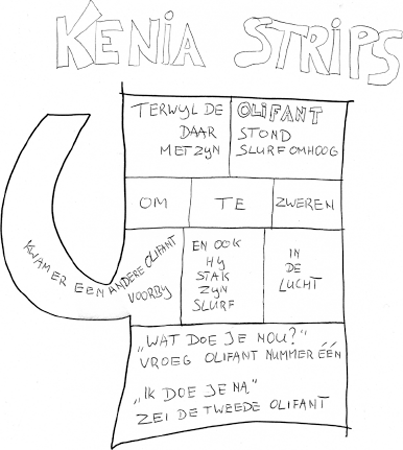 KENIA STRIPS
TERWYL DE
DAAR
MET ZYN
OLIFANT
STOND
SLURF OMHOOG
OM TE ZWEREN
KWAM ER EEN ANDERE OLIFANT
VOORBY
EN OOK
HY
STAK
ZYN
SLURF
IN
DE
LUCHT
„WAT DOE JE NOU?"
VROEG OLIFANT NUMMER ÉÉN
„IK DOE JE NA"
ZEI DE TWEEDE OLIFANT